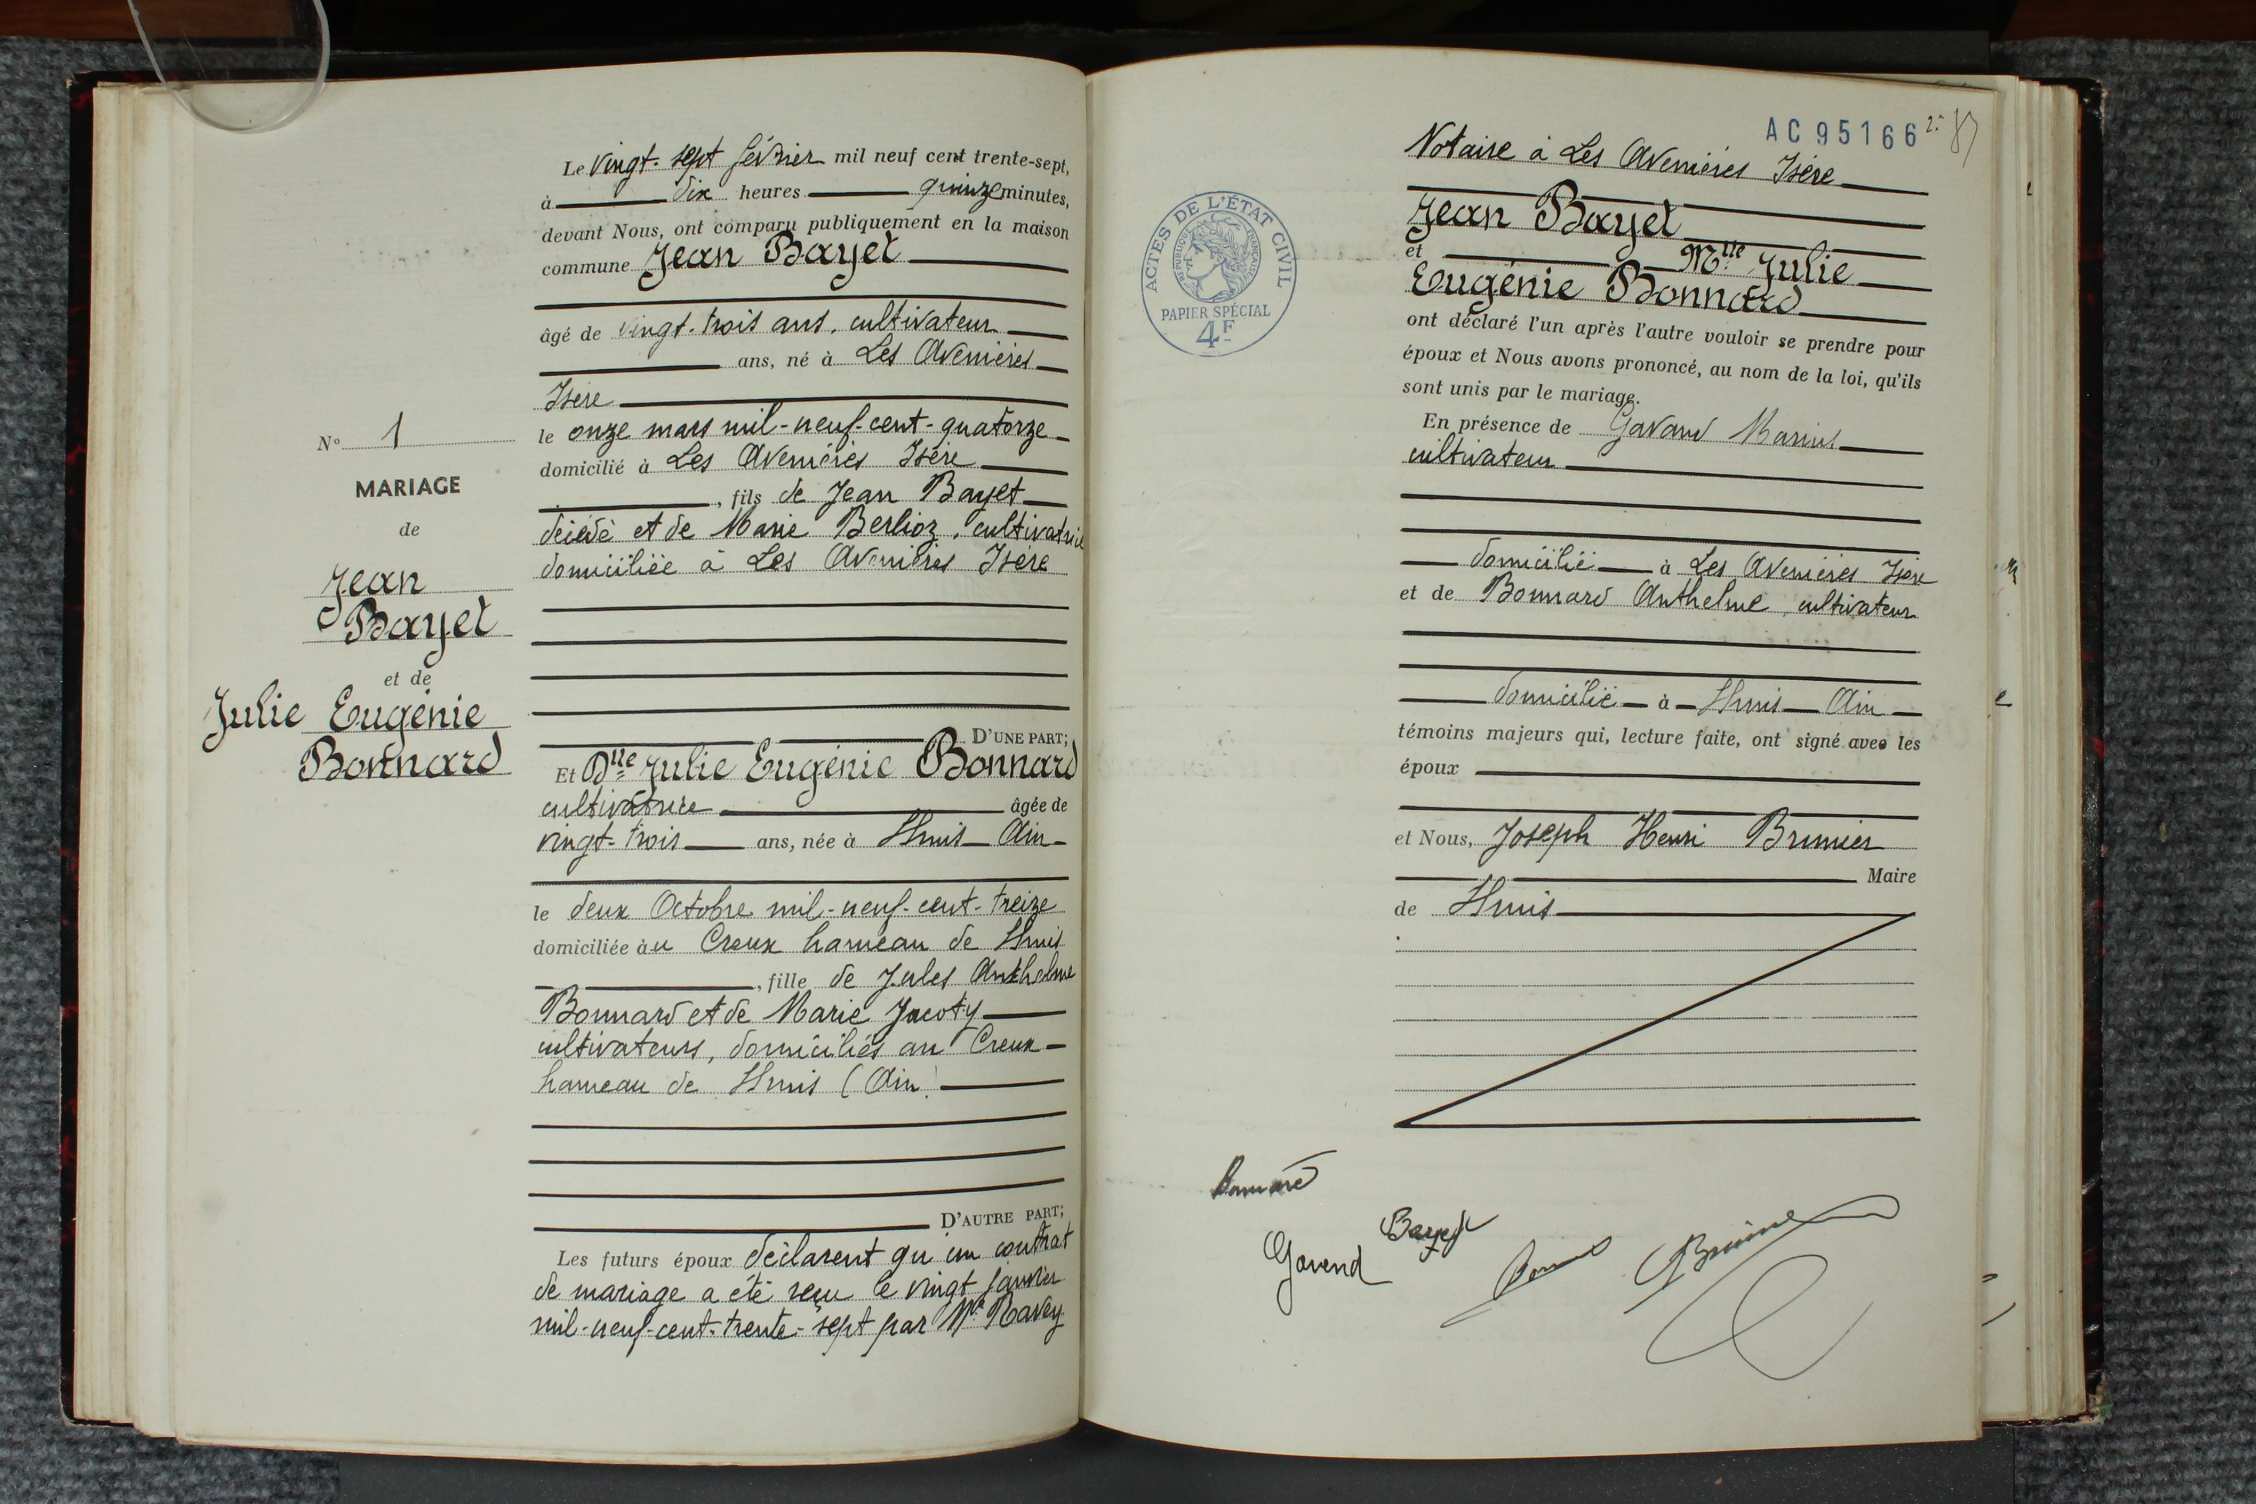 Le vingt-sept février mil neuf cent trente-sept,
à dix heures quinze minutes,
devant Nous, ont comparu publiquement en la maison
commune Jean Bayet
âgé de vingt-trois ans, cultivateur
ans, né à Les Avenières
Isère
le onze mars mil-neuf-cent-quatorze
domicilié à Les Avenières Isère
, fils de Jean Bayet
décédé et de Marie Berlioz, cultivatrice
domiciliée à Les Avenières Isère
D'UNE PART;
Et Dlle Julie Eugénie Bonnard
cultivatrice âgée de
vingt-trois ans, née à Lhuis Ain
le deux Octobre mil-neuf-cent-treize
domiciliée au Creux hameau de Lhuis
, fille de Jules Anthelme
Bonnard et de Marie Jacoty
cultivateurs, domiciliés au Creux
hameau de Lhuis (Ain)
D'AUTRE PART;
Les futurs époux déclarent qu'un contrat
de mariage a été reçu le vingt janvier
mil-neuf-cent-trente-sept par Me Ravey
N° 1
MARIAGE
de
Jean
Bayet
et de
Julie Eugénie
Bonnard
AC 95166
Notaire à Les Avenières Isère
Jean Bayet
et Mlle Julie
Eugénie Bonnard
ont déclaré l'un après l'autre vouloir se prendre pour
époux et Nous avons prononcé, au nom de la loi, qu'ils
sont unis par le mariage.
En présence de Gavand Marius
cultivateur
domicilié à Les Avenières Isère
et de Bonnard Anthelme, cultivateur
domicilié à Lhuis Ain
témoins majeurs qui, lecture faite, ont signé avec les
époux
et Nous, Joseph Henri Brunier
Maire
de Lhuis
ACTES DE L'ÉTAT CIVIL
RÉPUBLIQUE FRANÇAISE
PAPIER SPÉCIAL
4F
Bonnard
Bayet
Gavend
Brunier